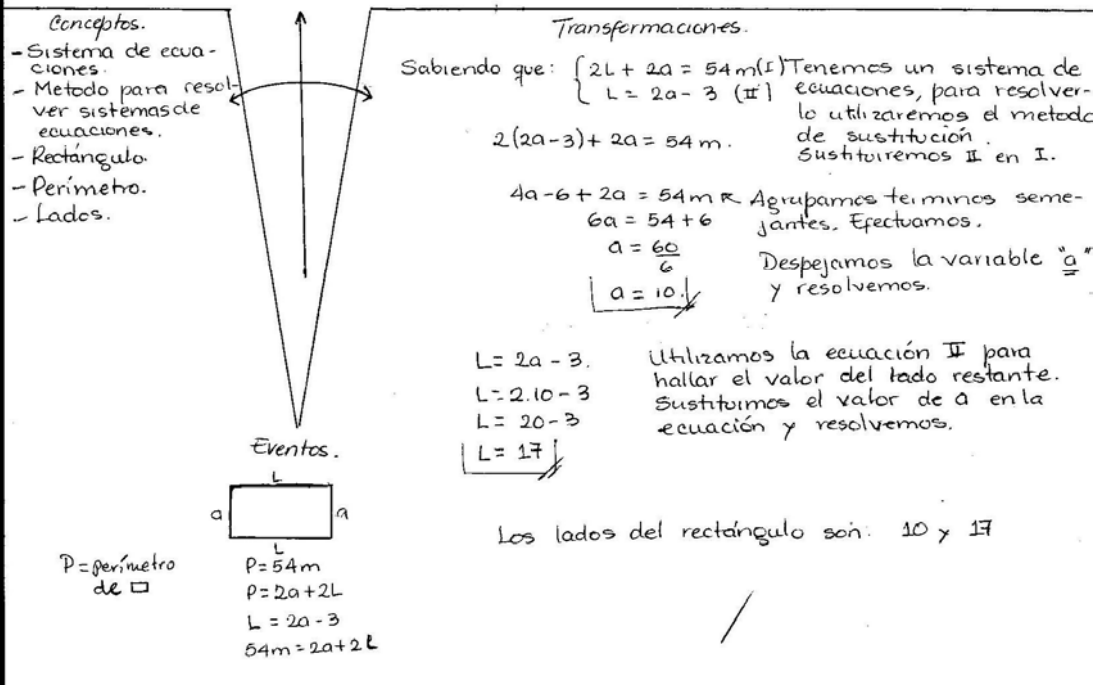 Conceptos.
- Sistema de ecua-
ciones.
- Metodo para resol-
ver sistemas de
ecuaciones.
- Rectángulo.
- Perímetro.
- Lados.
Eventos.
L
a
a
L
P = perímetro
de □
P = 54m
P = 2a + 2L
L = 2a - 3
54m = 2a + 2L
Transformaciones.
Sabiendo que: { 2L + 2a = 54m (I)
L = 2a - 3 (II)
Tenemos un sistema de
ecuaciones, para resolver-
lo utilizaremos el metodo
de sustitución.
Sustituiremos II en I.
2(2a-3) + 2a = 54m.
4a - 6 + 2a = 54m
Agrupamos terminos seme-
jantes. Efectuamos.
6a = 54 + 6
a = 60/6
a = 10.
Despejamos la variable "a"
y resolvemos.
L = 2a - 3.
L = 2.10 - 3
L = 20 - 3
L = 17
Utilizamos la ecuación II para
hallar el valor del lado restante.
Sustituimos el valor de a en la
ecuación y resolvemos.
Los lados del rectángulo son: 10 y 17